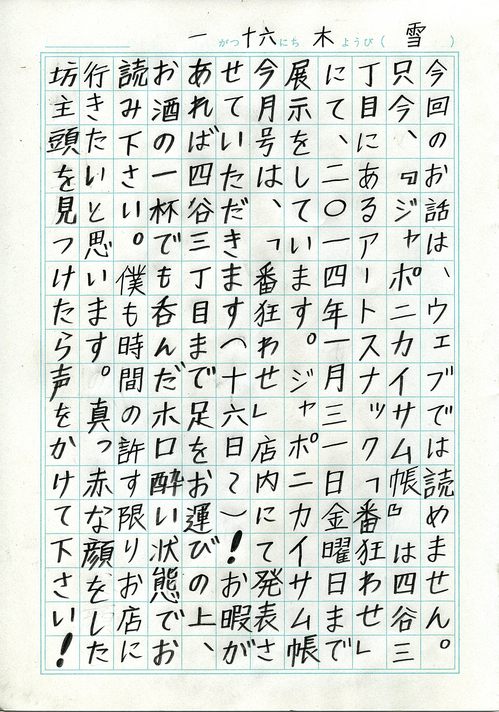 一がつ十六にち 木ようび(雪)
今回のお話は、ウェブでは読めません。
只今、『ジャポニカイサム帳』は四谷三
丁目にあるアートスナック「番狂わせ」
にて、二〇一四年一月三一日金曜日まで
展示をしています。ジャポニカイサム帳
今月号は、「番狂わせ」店内にて発表さ
せていただきます(十六日〜)!お暇が
あれば四谷三丁目まで足をお運びの上、
お酒の一杯でも呑んだホロ酔い状態でお
読み下さい。僕も時間の許す限りお店に
行きたいと思います。真っ赤な顔をした
坊主頭を見つけたら声をかけて下さい!